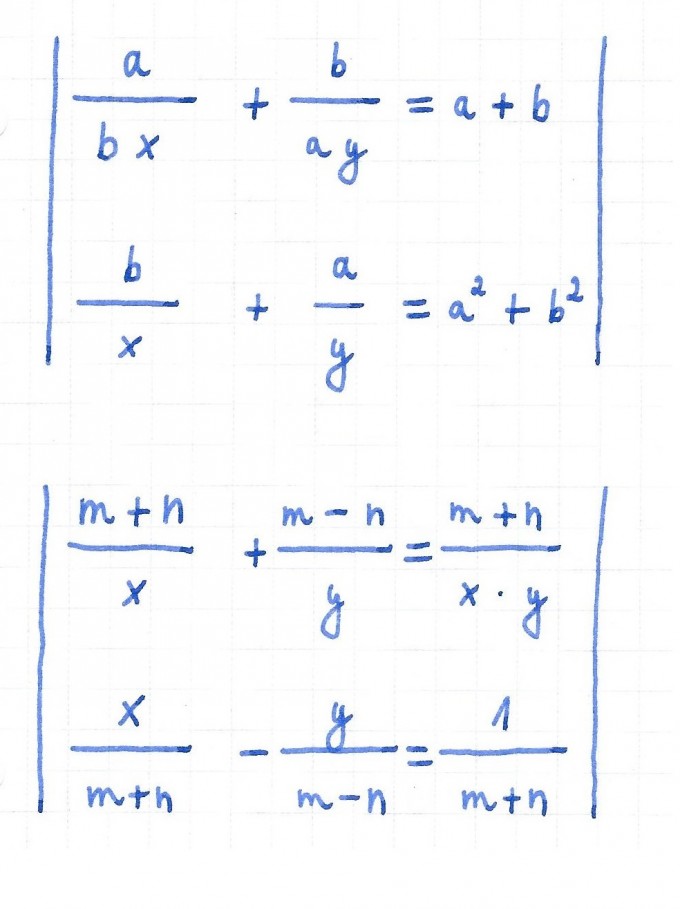 a/(b x) + b/(a y) = a + b
b/x + a/y = a² + b²
(m + n)/x + (m − n)/y = (m + n)/(x · y)
x/(m+n) − y/(m−n) = 1/(m+n)